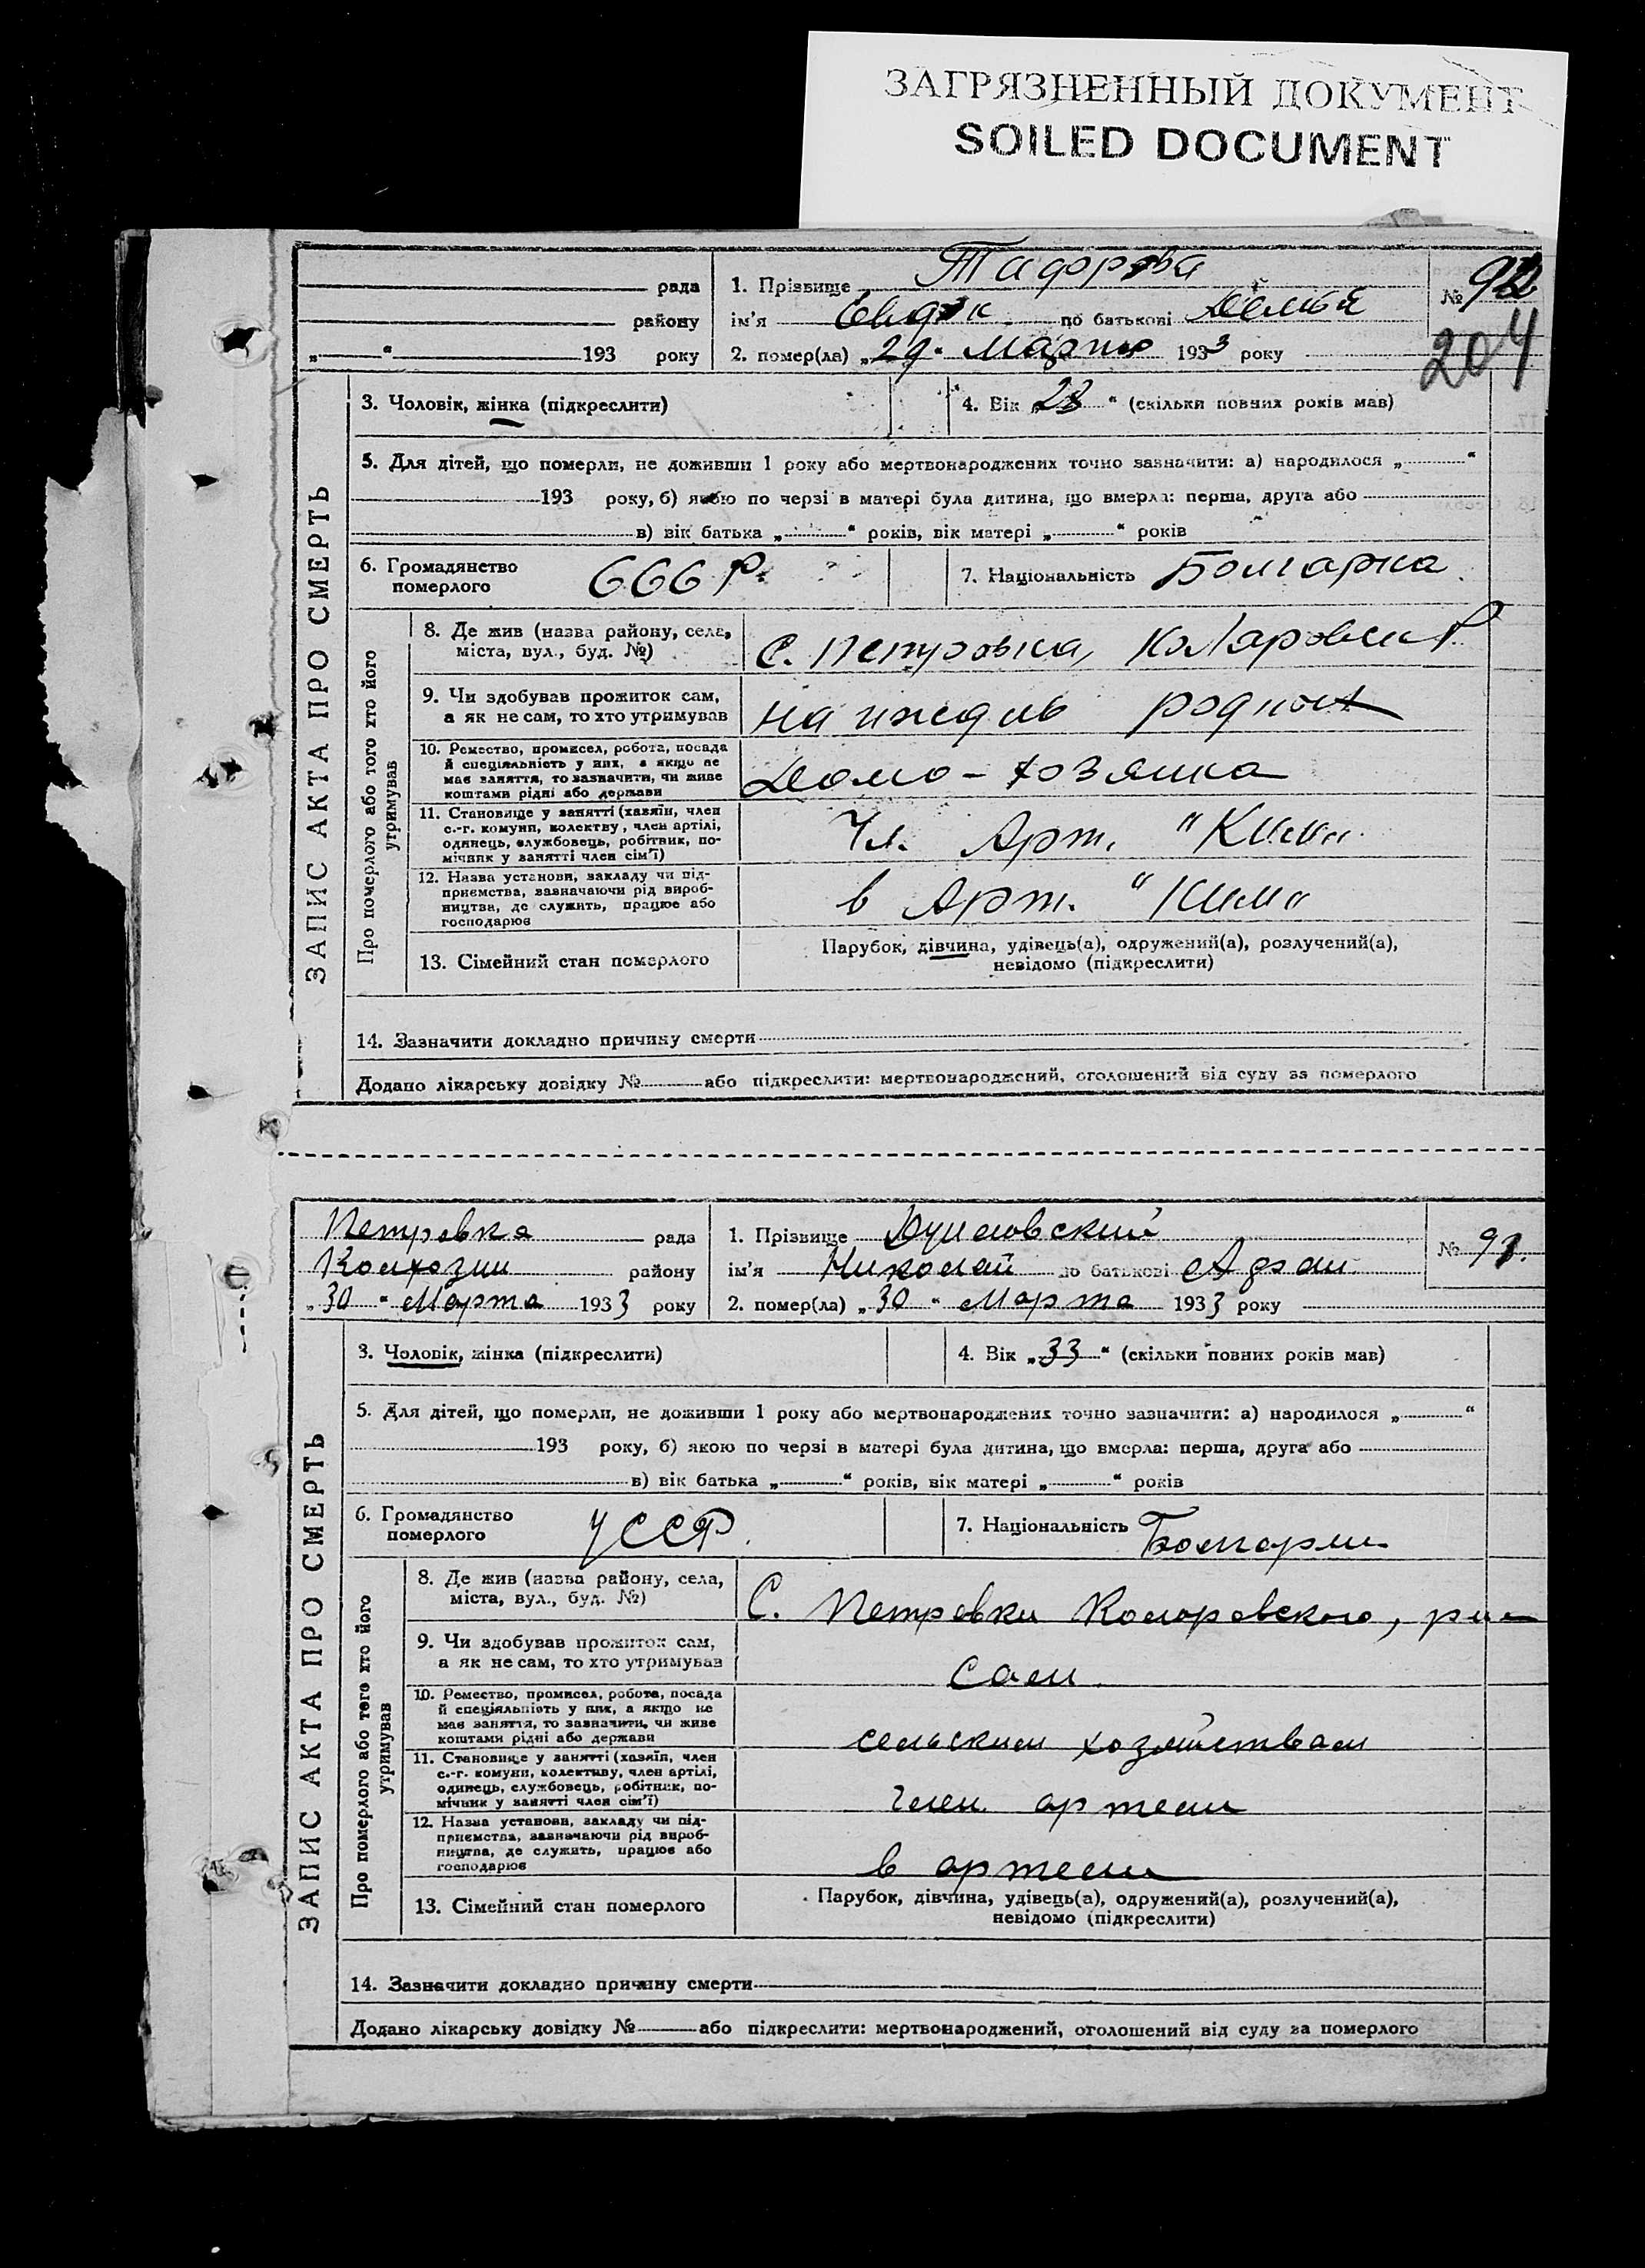 ЗАГРЯЗНЕННЫЙ ДОКУМЕНТ
SOILED DOCUMENT
рада
району
„ “ 193 року
1. Прізвище Тадорова
ім'я Евдок. по батькові
2. помер(ла) „29“ Марта 1933 року
№ 92
204
ЗАПИС АКТА ПРО СМЕРТЬ
3. Чоловік, жінка (підкреслити)
4. Вік „28“ (скільки повних років мав)
5. Для дітей, що померли, не доживши 1 року або мертвонароджених точно зазначити: а) народилося „ “
193 року, б) якою по черзі в матері була дитина, що вмерла: перша, друга або
в) вік батька „ “ років, вік матері „ “ років
6. Громадянство
померлого
СССР.
7. Національність Болгарка
Про померлого або того хто його
утримував
8. Де жив (назва району, села,
міста, вул., буд. №)
С. Петровка, Коларовск Р
9. Чи здобував прожиток сам,
а як не сам, то хто утримував
на иждив родных
10. Ремество, промисел, робота, посада
й спеціяльність у них, а якщо не
має заняття, то зазначити, чи живе
коштами рідні або держави
Домо-хозяйка
11. Становище у занятті (хазяїн, член
с.-г. комуни, колективу, член артілі,
одинець, службовець, робітник, по-
мічник у занятті член сім'ї)
Чл. Арт. "Ким"
12. Назва установи, закладу чи під-
приємства, зазначаючи рід вироб-
ництва, де служить, працює або
господарює
в Арт. "Ким"
13. Сімейний стан померлого
Парубок, дівчина, удівець(а), одружений(а), розлучений(а),
невідомо (підкреслити)
14. Зазначити докладно причину смерти
Додано лікарську довідку № або підкреслити: мертвонароджений, оголошений від суду за померлого
Петровка рада
району
„30“ Марта 1933 року
1. Прізвище
ім'я Николай по батькові
2. помер(ла) „30“ Марта 1933 року
№ 91.
ЗАПИС АКТА ПРО СМЕРТЬ
3. Чоловік, жінка (підкреслити)
4. Вік „33“ (скільки повних років мав)
5. Для дітей, що померли, не доживши 1 року або мертвонароджених точно зазначити: а) народилося „ “
193 року, б) якою по черзі в матері була дитина, що вмерла: перша, друга або
в) вік батька „ “ років, вік матері „ “ років
6. Громадянство
померлого
УССР.
7. Національність Болгарин
Про померлого або того хто його
утримував
8. Де жив (назва району, села,
міста, вул., буд. №)
С. Петровки Коларовского, р-на
9. Чи здобував прожиток сам,
а як не сам, то хто утримував
сам
10. Ремество, промисел, робота, посада
й спеціяльність у них, а якщо не
має заняття, то зазначити, чи живе
коштами рідні або держави
сельским хозяйствам
11. Становище у занятті (хазяїн, член
с.-г. комуни, колективу, член артілі,
одинець, службовець, робітник, по-
мічник у занятті член сім'ї)
член артели
12. Назва установи, закладу чи під-
приємства, зазначаючи рід вироб-
ництва, де служить, працює або
господарює
в артели
13. Сімейний стан померлого
Парубок, дівчина, удівець(а), одружений(а), розлучений(а),
невідомо (підкреслити)
14. Зазначити докладно причину смерти
Додано лікарську довідку № або підкреслити: мертвонароджений, оголошений від суду за померлого